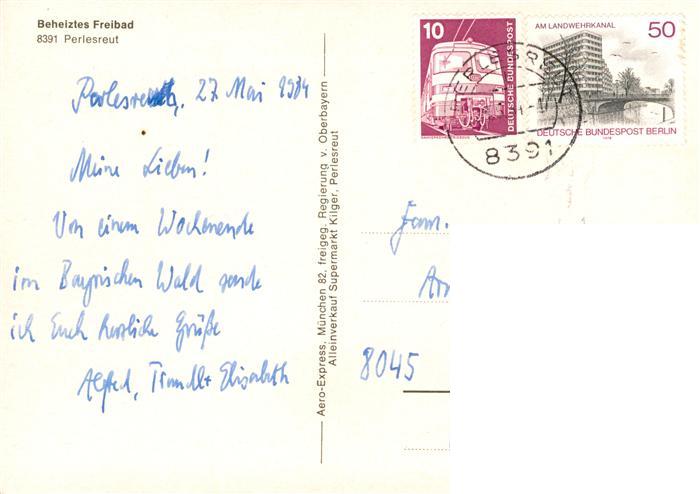 Beheiztes Freibad
8391 Perlesreut
Perlesreut, 27 Mai 1984
Meine Lieben!
Von einem Wochenende
im Bayrischen Wald sende
ich Euch herzliche Grüße
Alfred, Traudl + Elisabeth
Aero-Express, München 82, freigeg. Regierung v. Oberbayern
Alleinverkauf Supermarkt Kilger, Perlesreut
10
DEUTSCHE BUNDESPOST
AM LANDWEHRKANAL
50
DEUTSCHE BUNDESPOST BERLIN
8391
Fam.
8045